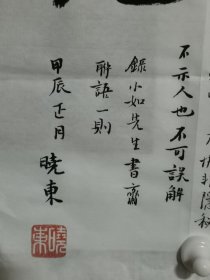 不示人也不可誤解
錄小如先生書齋
聯語一則
甲辰正月曉東
曉東